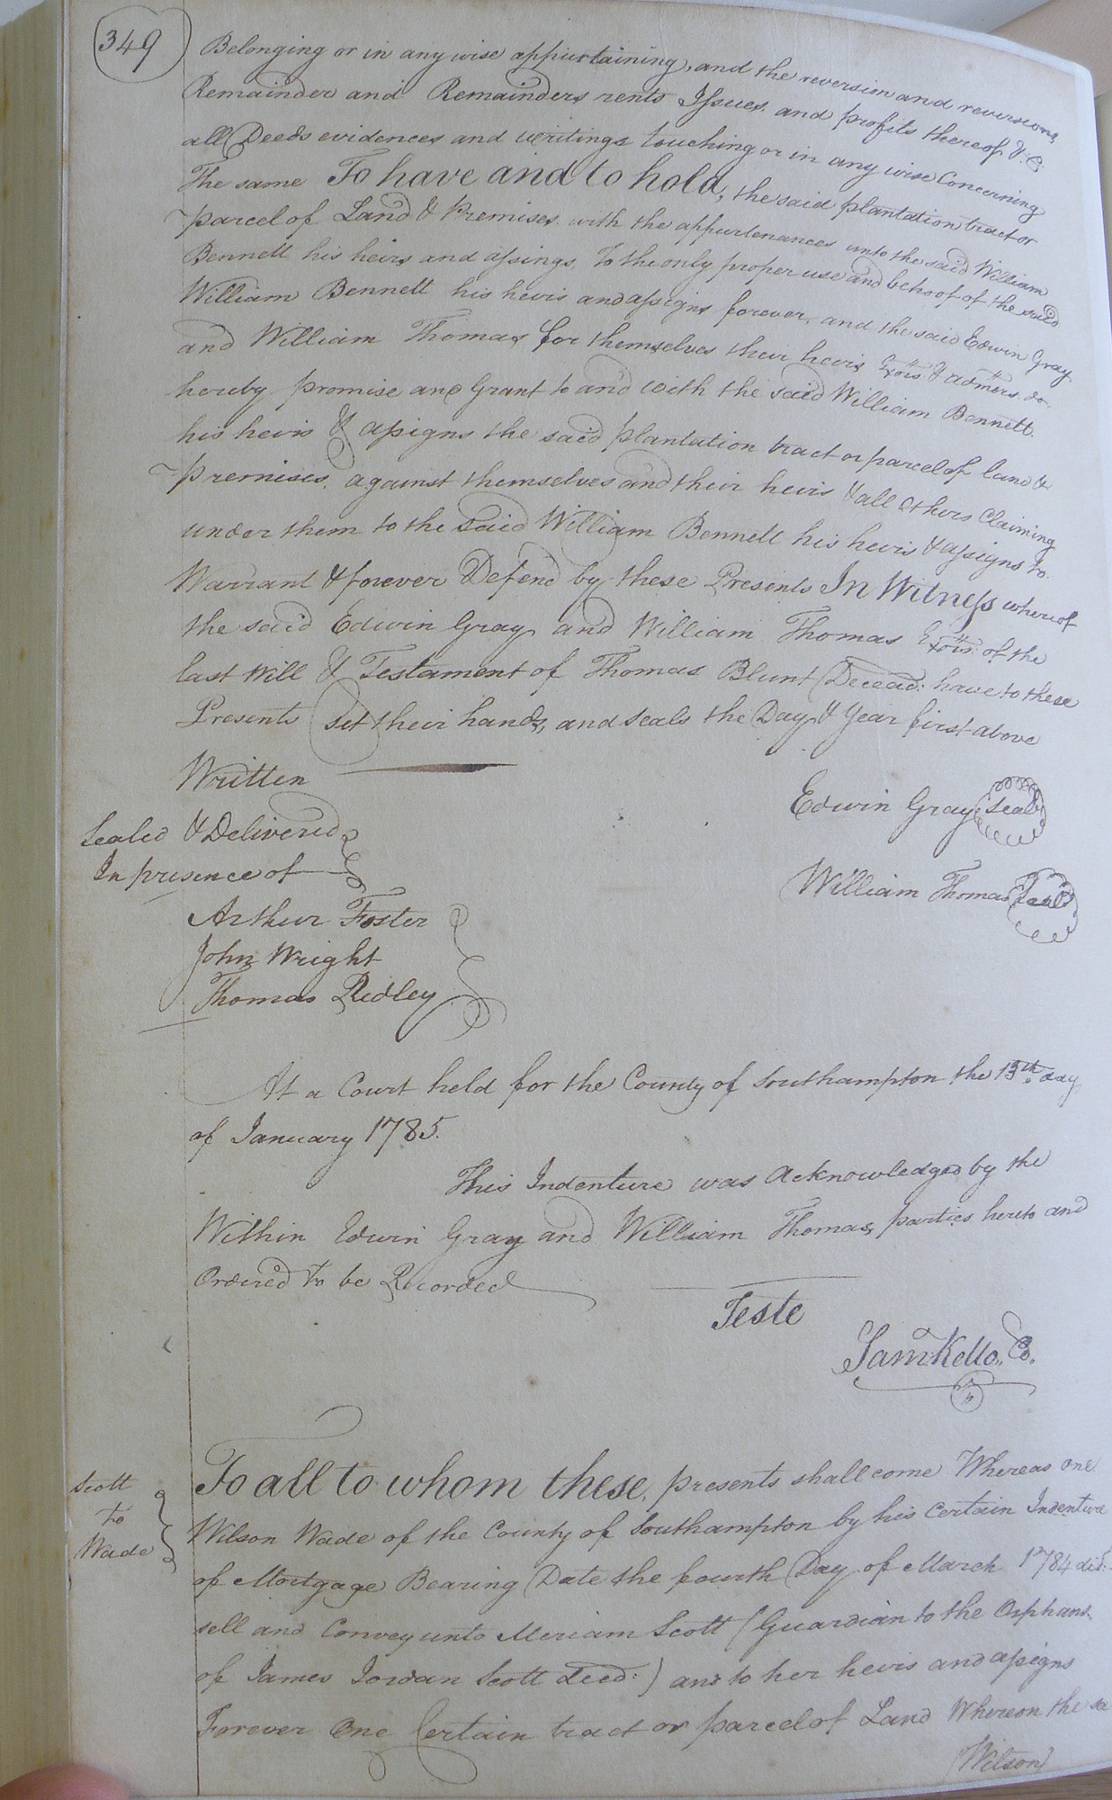 349
Belonging or in any wise appurtaining, and the reversion and reversions,
Remainder and Remainders rents Issues and profits thereof & &
all Deeds evidences and writings touching or in any wise Concerning
The same To have and to hold, the said plantation tract or
parcel of Land & Premises with the appurtenances unto the said William
Bennett his heirs and assings, To the only proper use and behoof of the said
William Bennett his heirs and assigns forever, and the said Edwin Gray
and William Thomas for themselves their heirs Exors & Admers do
hereby promise and Grant to and with the said William Bennett
his heirs & assigns the said plantation tract or parcel of land &
premises, against themselves and their heirs & all others Claiming
under them to the said William Bennett his heirs & assigns to
Warrant & forever Defend by these Presents In Witness whereof
the said Edwin Gray and William Thomas Exors: of the
last Will & Testament of Thomas Blunt Decead: have to these
Presents set their hands, and seals the Day & Year first above
Written
Edwin Gray Seal
Sealed & Delivered
In presence of
William Thomas Seal
Arthur Foster
John Wright
Thomas Ridley
At a Court held for the County of Southampton the 13th day
of January 1785.
This Indenture was Acknowledged by the
Within Edwin Gray and William Thomas, parties hereto and
Ordered To be Recorded
Teste
Sam Kello, Co.
Scott
To
Wade
To all to whom these, presents shall come Whereas one
Wilson Wade of the County of Southampton by his Certain Indenture
of Mortgage Bearing Date the fourth Day of March 1784 did:
sell and Convey unto Meriam Scott (Guardian to the Orphans
of James Jordan Scott decd:) and to her heirs and assigns
Forever One Certain tract or parcel of Land Whereon the sa
(Wilson)